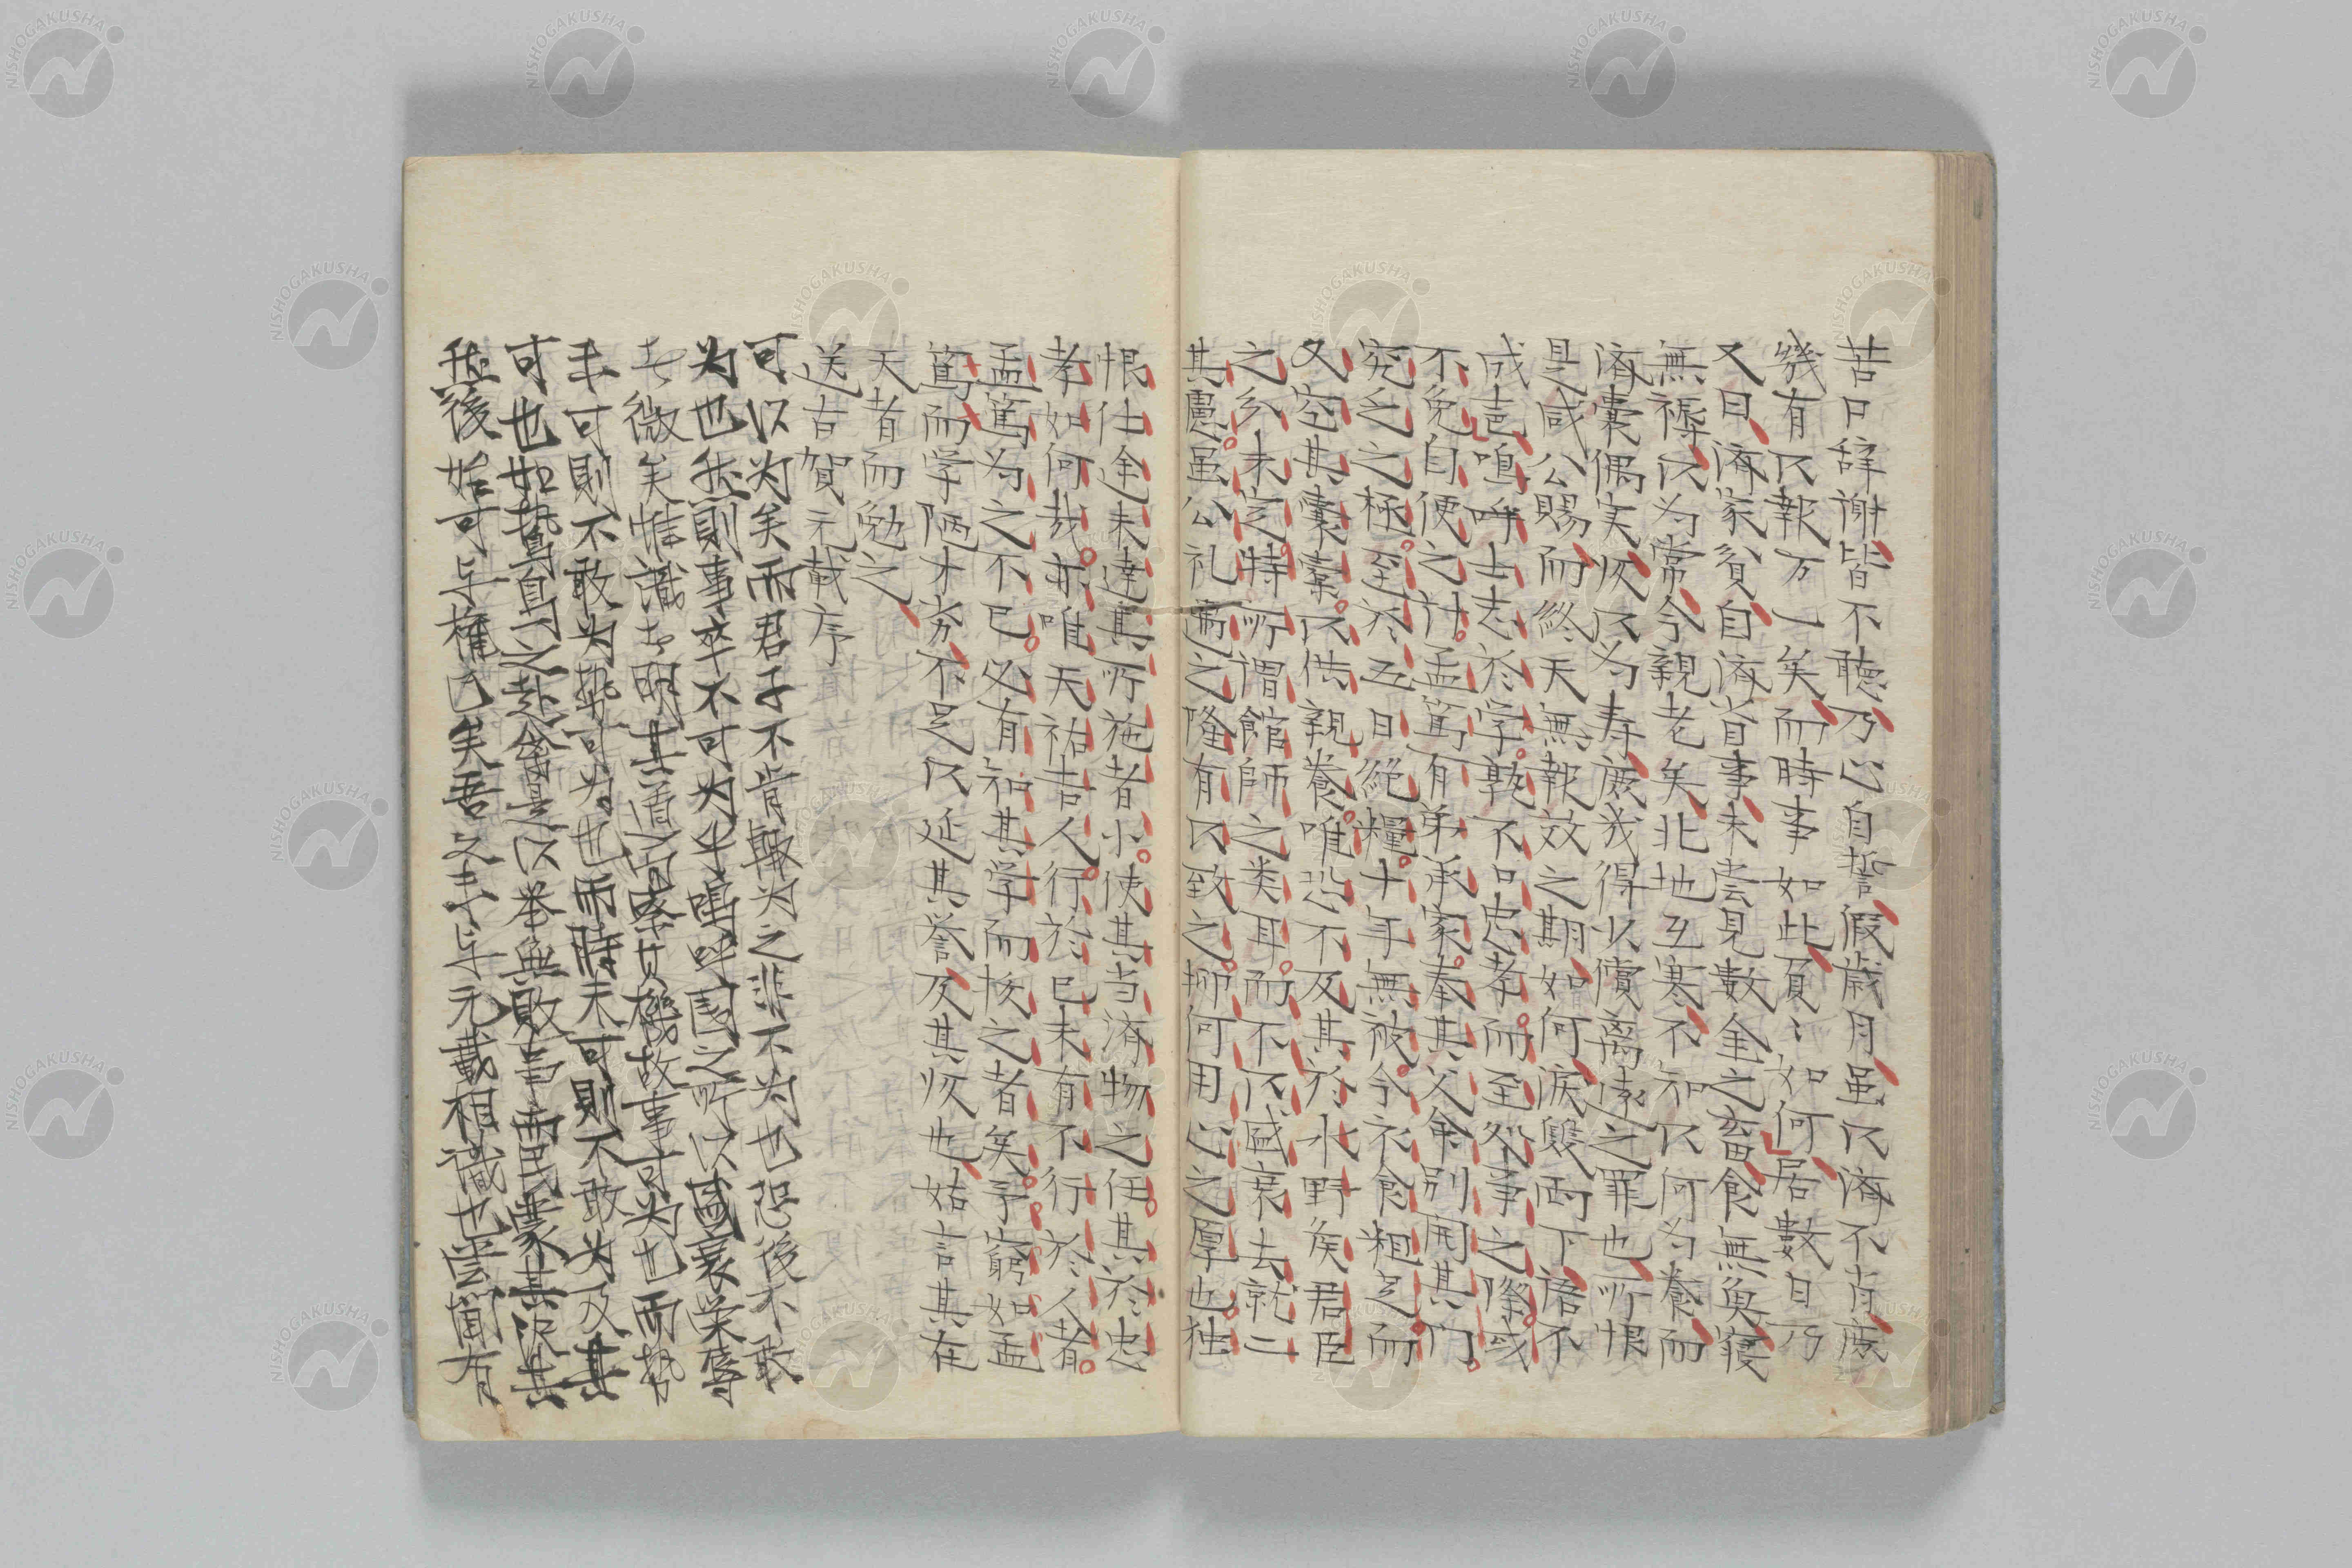 苦口辞謝皆不聴乃心自誓假歳月虽以済不肖庶
幾有以報万一矣而時事如此負〻如何居數日乃
又曰済家貧自済省事未嘗見數金之畜食無魚寝
無褥以为常今親老矣北地互寒不知以何为養而
済嚢偶实收以为寿庶幾得以償离遠之罪也所恨
是咸公賜而終天無報效之期如何涙毀両下悟不
成声嗚呼士志於学孰不口忠孝而至処事之際或
不免自便之計孟篤有弟承家奉其父余别開其门
究乏之極至於五日絶糧十年無被今衣食粗足而
又空其嚢槖以供親養唯恐不及其於水野矦君臣
之分未定特所謂館師之类耳而不以盛衰去就二
其慮虽公礼遇之隆有以致之抑何用心之厚也独
恨仕途未達其所施者小使其当済物之任其於忠
孝如何哉亦唯天祐吉人行於己未有不行於人者
孟篤为之不已必有知其学而挨之者矣予窮如孟
篤而学陋才劣不足以延其誉及其收也姑言其在
天者而勉之
送古賀元載序
可以为矣而君子不肯輙为之非不为也恐後不敢
为也然則事卒不可为乎嗚呼国之所以盛衰荣辱
去微矣惟識士明其道而察其機故事可为也而勢
未可則不敢为勢可为也而時未可則不敢为及其
可也如鷙鳥之赴禽是以举無敗事而民蒙其沢其
然後始可与権已矣吾又未与元載相識也尝聞有